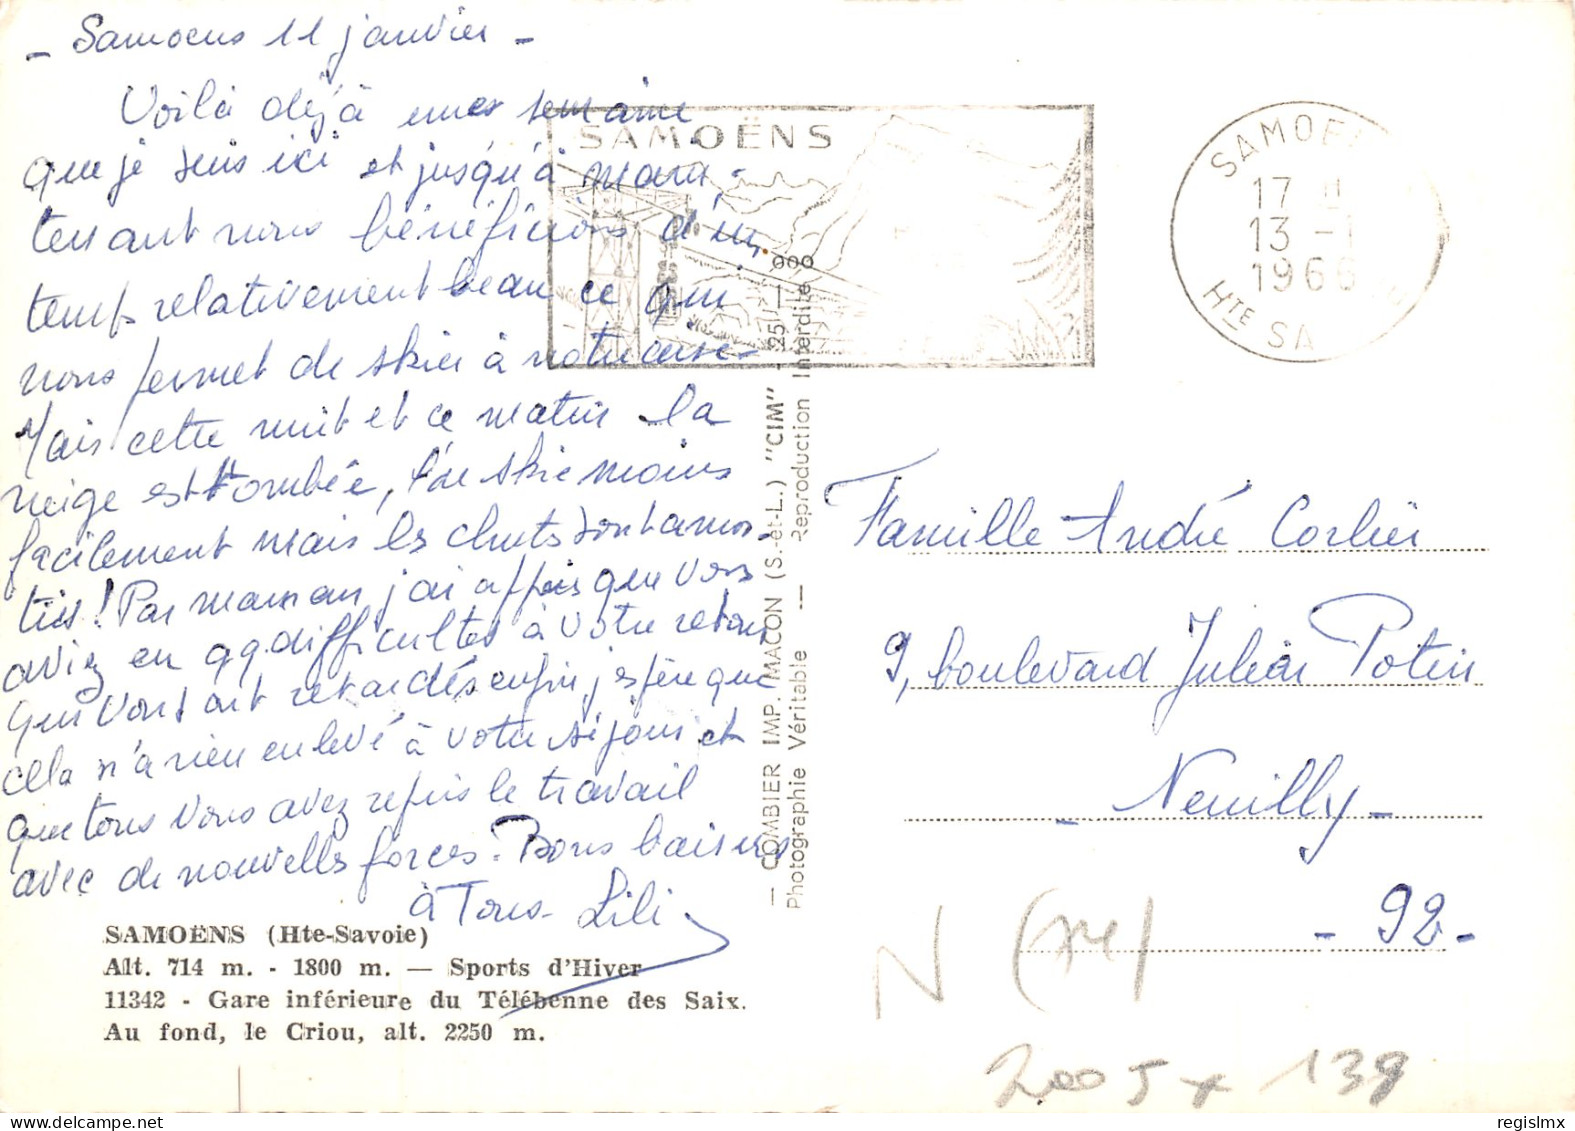 - Samoens 11 janvier -
Voilà déjà une semaine
que je suis ici et jusqu'à main-
tenant nous bénéficions d'un
temps relativement beau ce qui
nous permet de skier à notre aise.
Mais cette nuit et ce matin la
neige est tombée, l'on skie moins
facilement mais les chutes sont amor-
ties! Par maman j'ai appris que vous
aviez eu qq. difficultés à votre retour
qui vous ont retardés enfin j'espère que
cela n'a rien enlevé à votre séjour et
que tous vous avez repris le travail
avec de nouvelles forces. Bons baisers
à Tous - Lili
SAMOËNS (Hte-Savoie)
Alt. 714 m. - 1800 m. — Sports d'Hiver
11342 - Gare inférieure du Télébenne des Saix.
Au fond, le Criou, alt. 2250 m.
— COMBIER IMP. MACON (S.-et-L.) "CIM" - 25 —
Photographie Véritable — Reproduction Interdite
SAMOËNS
17 H
13 - 1
1966
HTE SA
Famille André Corbier
9, boulevard Julien Potin
- Neuilly -
- 92 -
N (74)
2005 x 138
regislmx